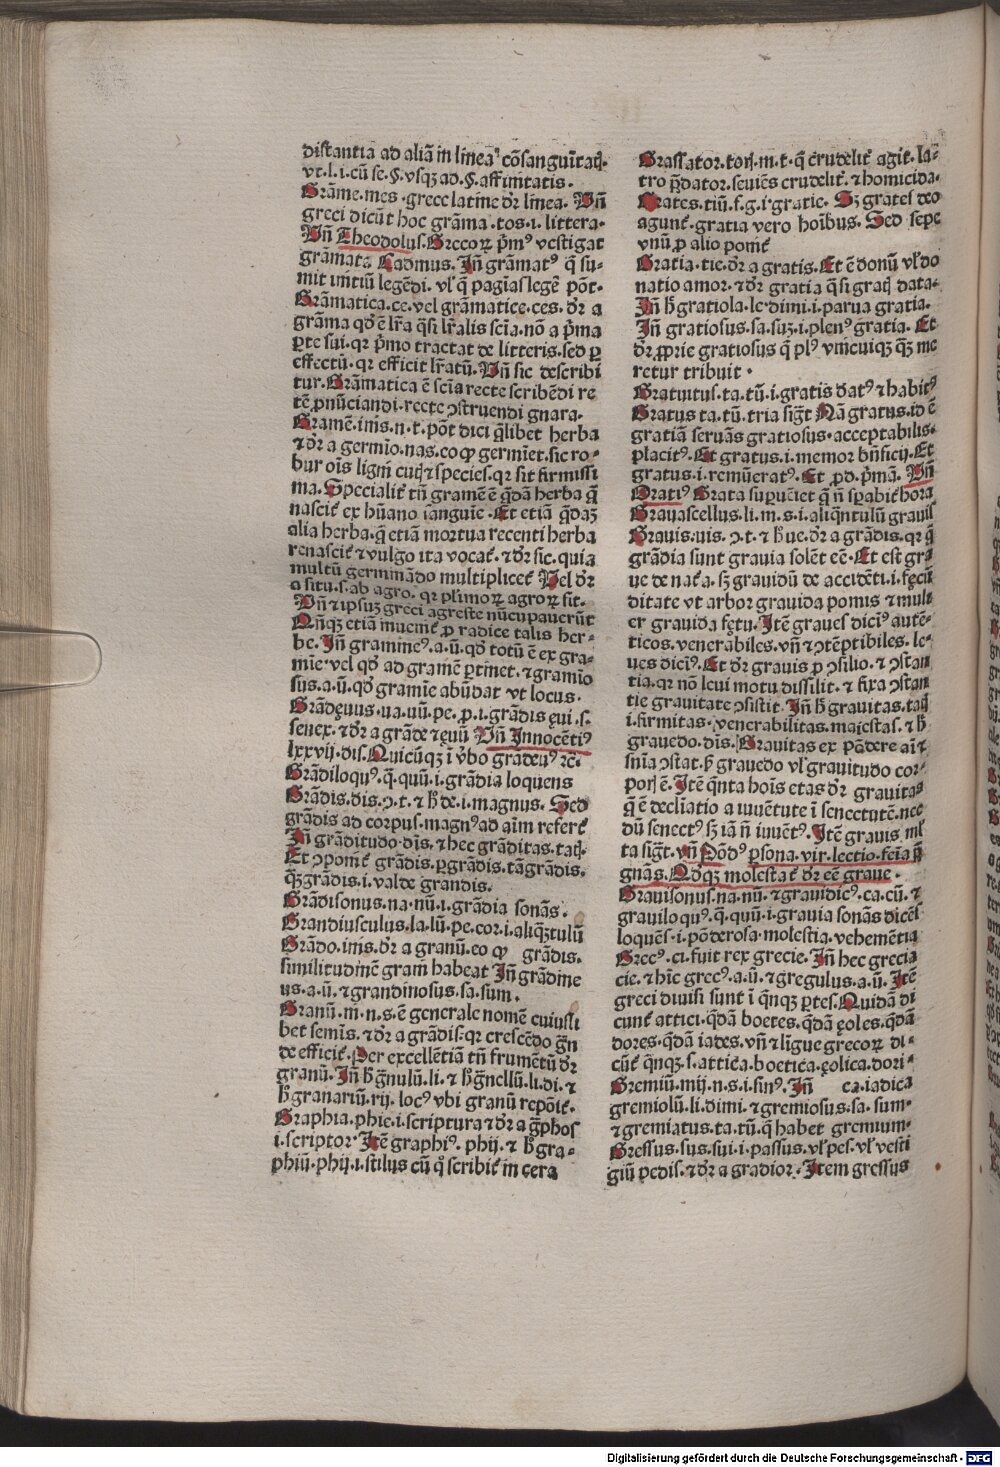 distantia ad aliā in linea cōsanguīitatꝭ.
vt.l.i.cū se.ꝯ.vsqꝫ ad.ꝯ.affinitatis.
Grāme.mes.grece latine dr̄ linea. Vn̄
greci dicūt hoc grāma.tos.i.littera.
Vn̄ Theodolus.Grecoꝝ pm̄ꝰ vestigat
grāmata Cadmus.In̄ grāmatꝰ q̄ su-
mit initiū legēdi.vl̓ q̄ pagīas legē pōt.
Grāmatica.ce.vel grāmatice.ces.dr̄ a
grāma qd̓ ē lr̄a q̄si lr̄alis scīa.nō a p̄ma
ꝑte sui.qr pͥmo tractat de litteris.sed ꝑ
effectū.qr efficit lr̄atū.Vn̄ sic describi
tur.Grāmatica ē scīa recte scribēdi re
tē ꝓnūciandi.recte ꝯstruendi gnara.
Gramē.inis.n.t.pōt dici q̄libet herba
⁊ dr̄ a germīo.nas.eo ꝙ germīet.sic ro-
bur oīs ligni cuiꝰ ⁊ species.qr sit firmissi
ma.Specialit̓ tn̄ gramē ē q̄dā herba q̄
nascit̓ ex hūano sanguīe.Et etiā q̄dāꝫ
alia herba.q̄ etiā mortua recenti herba
renascit̓ ⁊ vulgo ita vocat̓.⁊ dr̄ sic.quia
multū germinādo multiplicet̓ Vel dr̄
a situ.s.ab agro.qr pl̓imoꝝ agroꝝ sit.
Vn̄ ⁊ ipsuꝫ greci agreste nūcupauerūt
Qn̄qꝫ etiā inuenit̓ ꝓ radice talis her-
be.In̄ gramineꝰ.a.ū.qd̓ totū ē ex gra-
mīe.vel qd̓ ad gramē ꝑtinet.⁊ gramīo
sus.a.ū.qd̓ gramīe abūdat vt locus.
Grādęuus.ua.uū.pe.ꝓ.i.grādis ęui.s.
senex.⁊ dr̄ a grāde ⁊ ęuū Vn̄ Innocētiꝰ
lxxvij.dis.Quicūqꝫ ī v̓bo gradeuꝰ rc̄.
Grādiloqꝰ.q̄.quū.i.grādia loquens
Grādis.dis.ꝯ.t.⁊ h̓ de.i.magnus. Sed
grādis ad corpus.magnꝰ ad aīm refert̓
In̄ grāditudo.dīs.⁊ hec grāditas.tatꝭ.
Et ꝯponit̓ grādis.ꝑgrādis.tāgrādis.
q̄ꝫgrādis.i.valde grandis.
Grādisonus.na.nū.i.grādia sonās.
Grandiusculus.la.lū.pe.cor.i.aliqꝫtulū
Grādo.inis.dr̄ a granū.eo ꝙ grādis.
similitudinē grani habeat In̄ grādine
us.a.ū.⁊ grandinosus.sa.sum.
Granū.ni.n.s.ē generale nomē cuiusli
bet semīs.⁊ dr̄ a grādis:qr crescēdo grā
de efficit̓.Per excellētiā tn̄ frumētū dr̄
granū.In̄ h̓ grānulū.li.⁊ h̓ grānellū.li.di.⁊
h̓ granariū.rij.locꝰ vbi granū repōit̓.
Graphia.phie.i.scriptura ⁊ dr̄ a grāphos
i.scriptor Itē graphiꝰ.phij.⁊ h̓ gra-
phiū.phij.i.stilus cū qͦ scribit̓ in cera
Grassator.toris.m.t.q̄ crudelit̓ agit.la-
tro p̄dator.seuiēs crudelit̓.⁊ homicida.
Grates.tiū.f.g.i gratie. Sꝫ grates deo
agunt̓.gratia vero hoībus. Sed sepe
vnū ꝓ alio ponit̓
Gratia.tie.dr̄ a gratis.Et ē donū vl̓ do
natio amor.⁊ dr̄ gratia q̄si gratꝭ data.
In̄ h̓ gratiola.le.dimi.i.parua gratia.
In̄ gratiosus.sa.suꝫ.i.plenꝰ gratia. Et
dr̄ ꝓprie gratiosus q̄ plꝰ vnicuiqꝫ q̄ꝫ me
retur tribuit.
Gratuitus.ta.tū.i.gratis datꝰ ⁊ habitꝰ
Gratus ta.tū.tria sigt̄ Nā gratus.id ē
gratiā seruās gratiosus.acceptabilis.
placitꝰ.Et gratus.i.memor bn̄ficij.Et
gratus.i.remūeratꝰ.Et ꝓd.p̄mā. Vn̄
Oratiꝰ Grata supuēiet q̄ n̄ sꝑabit̓ hora
Grauascellus.li.m.s.i.aliqn̄tulū grauis
Grauis.uis.ꝯ.t.⁊ h̓ ue.dr̄ a grādis.qr q̄
grādia sunt grauia solēt eē.Et est gra
ue de nat̓a.sꝫ grauidū de accidēti.i.fęcū
ditate vt arbor grauida pomis ⁊ muli
er grauida fętu.Itē graues dicīꝰ autē-
ticos.venerabiles.vn̄ ⁊ ꝯtēptibiles.le-
ues dicīꝰ.Et dr̄ grauis ꝓ ꝯsilio.⁊ ꝯstan
tia.qr nō leui motu dissilit.⁊ fixa ꝯstan
tie grauitate ꝯsistit.In̄ h̓ grauitas.tatꝭ
i.firmitas.venerabilitas.maiestas.⁊ h̓
grauedo.dīs.Grauitas ex pōdere aīi ⁊
snīa ꝯstat.h̓ grauedo vl̓ grauitudo cor-
poris ē.Itē q̄nta hoīs etas dr̄ grauitas
q̄ ē declīatio a iuuētute ī senectutē.nec
dū senectꝰ sꝫ iā n̄ iuuētꝰ.Itē grauis ml̓
ta sigt̄.vn̄ Pōdꝰ ꝑsona.vir.lectio.fēīa p̄
gnās.Qd̓qꝫ molestat̓ dr̄ eē graue.
Grauisonus.na.nū.⁊ grauidicꝰ.ca.cū.⁊
grauiloquꝰ.q̄.quū.i.grauia sonās dicēs
loquēs.i.pōderosa.molestia.vehemētia
Grecꝰ.ci.fuit rex grecie.In̄ hec grecia
cie.⁊ hīc grecꝰ.a.ū.⁊ gregulus.a.ū.Itē
greci diuisi sunt ī q̄nqꝫ ꝑtes.Quidā di
cunt̓ attici.q̄dā boetes.q̄dā ęoles.q̄dā
dores.q̄dā iades.vn̄ ⁊ līgue grecoꝝ di-
cūt̓ q̄nqꝫ.s.attica.boetica.ęolica.dori-
Gremiū.mij.n.s.i.sinꝰ.In̄ ca.iadica
gremiolū.li.dimi.⁊ gremiosus.sa.sum.
⁊ gremiatus.ta.tū.q̄ habet gremium.
Gressus.sus.sui.i.passus.vl̓ pes.vl̓ vesti
giū pedis.⁊ dr̄ a gradior. Item gressus
Digitalisierung gefördert durch die Deutsche Forschungsgemeinschaft - DFG